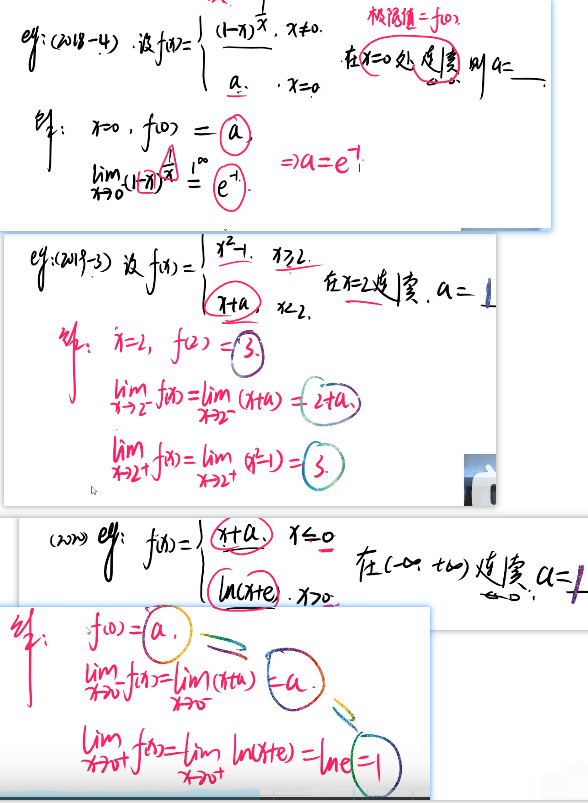 极限值=f(0)
eg:(2018-4).设f(x)={(1-x)^{1/x}, x≠0. 在x=0处连续 则a=___
a. , x=0
解: x=0, f(0) = a
lim_{x→0} (1-x)^{1/x} 1^∞= e^{-1}. ⇒a=e^{-1}.
eg:(2019-3) 设f(x)={x²-1. x≥2. 在x=2连续. a= 1
x+a, x<2.
解: x=2, f(2) = 3.
lim_{x→2⁻} f(x)=lim_{x→2⁻} (x+a) = 2+a.
lim_{x→2⁺} f(x)=lim_{x→2⁺} (x²-1)= 3.
(2020) eg: f(x)={x+a, x≤0 在(-∞ +∞)连续. a=1
ln(x+e). x>0
解: f(0)=a.
lim_{x→0⁻} f(x)=lim_{x→0⁻} (x+a) =a.
lim_{x→0⁺} f(x)=lim_{x→0⁺} ln(x+e)=lne=1